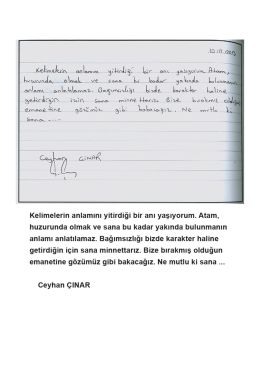 10.11.2015
Kelimelerin anlamını yitirdiği bir anı yaşıyorum. Atam,
huzurunda olmak ve sana bu kadar yakında bulunmanın
anlamı anlatılamaz. Bağımsızlığı bizde karakter haline
getirdiğin için sana minnettarız. Bize bırakmış olduğun
emanetine gözümüz gibi bakacağız. Ne mutlu ki
sana ....
Ceyhan ÇINAR
Kelimelerin anlamını yitirdiği bir anı yaşıyorum. Atam,
huzurunda olmak ve sana bu kadar yakında bulunmanın
anlamı anlatılamaz. Bağımsızlığı bizde karakter haline
getirdiğin için sana minnettarız. Bize bırakmış olduğun
emanetine gözümüz gibi bakacağız. Ne mutlu ki sana ...
Ceyhan ÇINAR